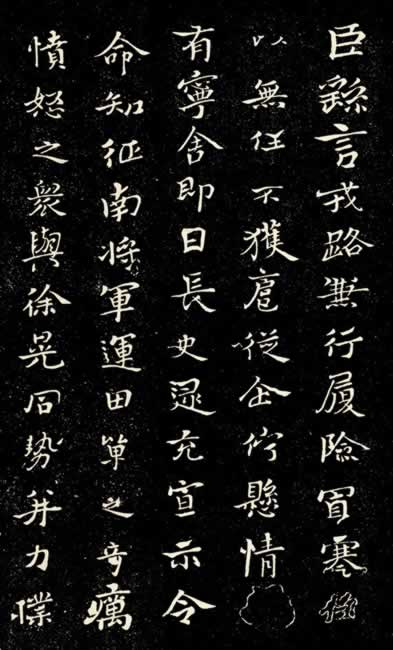 臣繇言戎路兼行履險冒寒
以無任不獲扈從企佇懸情
有寧舍即日長史逯充宣示令
命知征南將軍運田單之奇厲
憤怒之眾與徐晃同勢并力撲